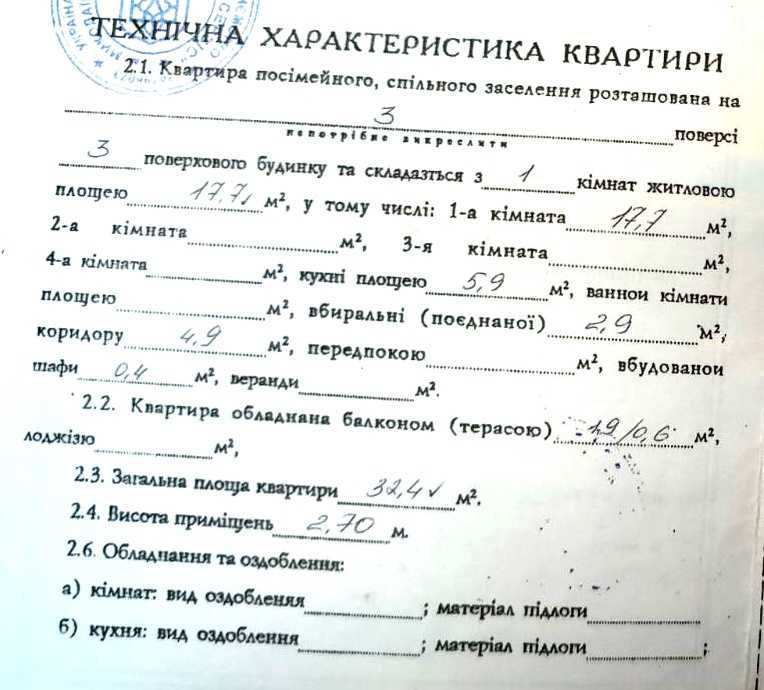 ТЕХНІЧНА ХАРАКТЕРИСТИКА КВАРТИРИ
2.1. Квартира посімейного, спільного заселення розташована на
3 поверсі
непотрібне викреслити
3 поверхового будинку та складазться з 1 кімнат житловою
площею 17,7 м², у тому числі: 1-а кімната 17,7 м²,
2-а кімната м², 3-я кімната м²,
4-а кімната м², кухні площею 5,9 м², ванної кімнати
площею м², вбиральні (поєднаної) 2,9 м²,
коридору 4,9 м², передпокою м², вбудованої
шафи 0,4 м², веранди м².
2.2. Квартира обладнана балконом (терасою) 1,9/0,6 м²,
лоджізю м²,
2.3. Загальна площа квартири 32,4 м².
2.4. Висота приміщень 2,70 м.
2.6. Обладнання та оздоблення:
а) кімнат: вид оздобленяя ; матеріал підлоги
б) кухня: вид оздоблення ; матеріал підлоги ;